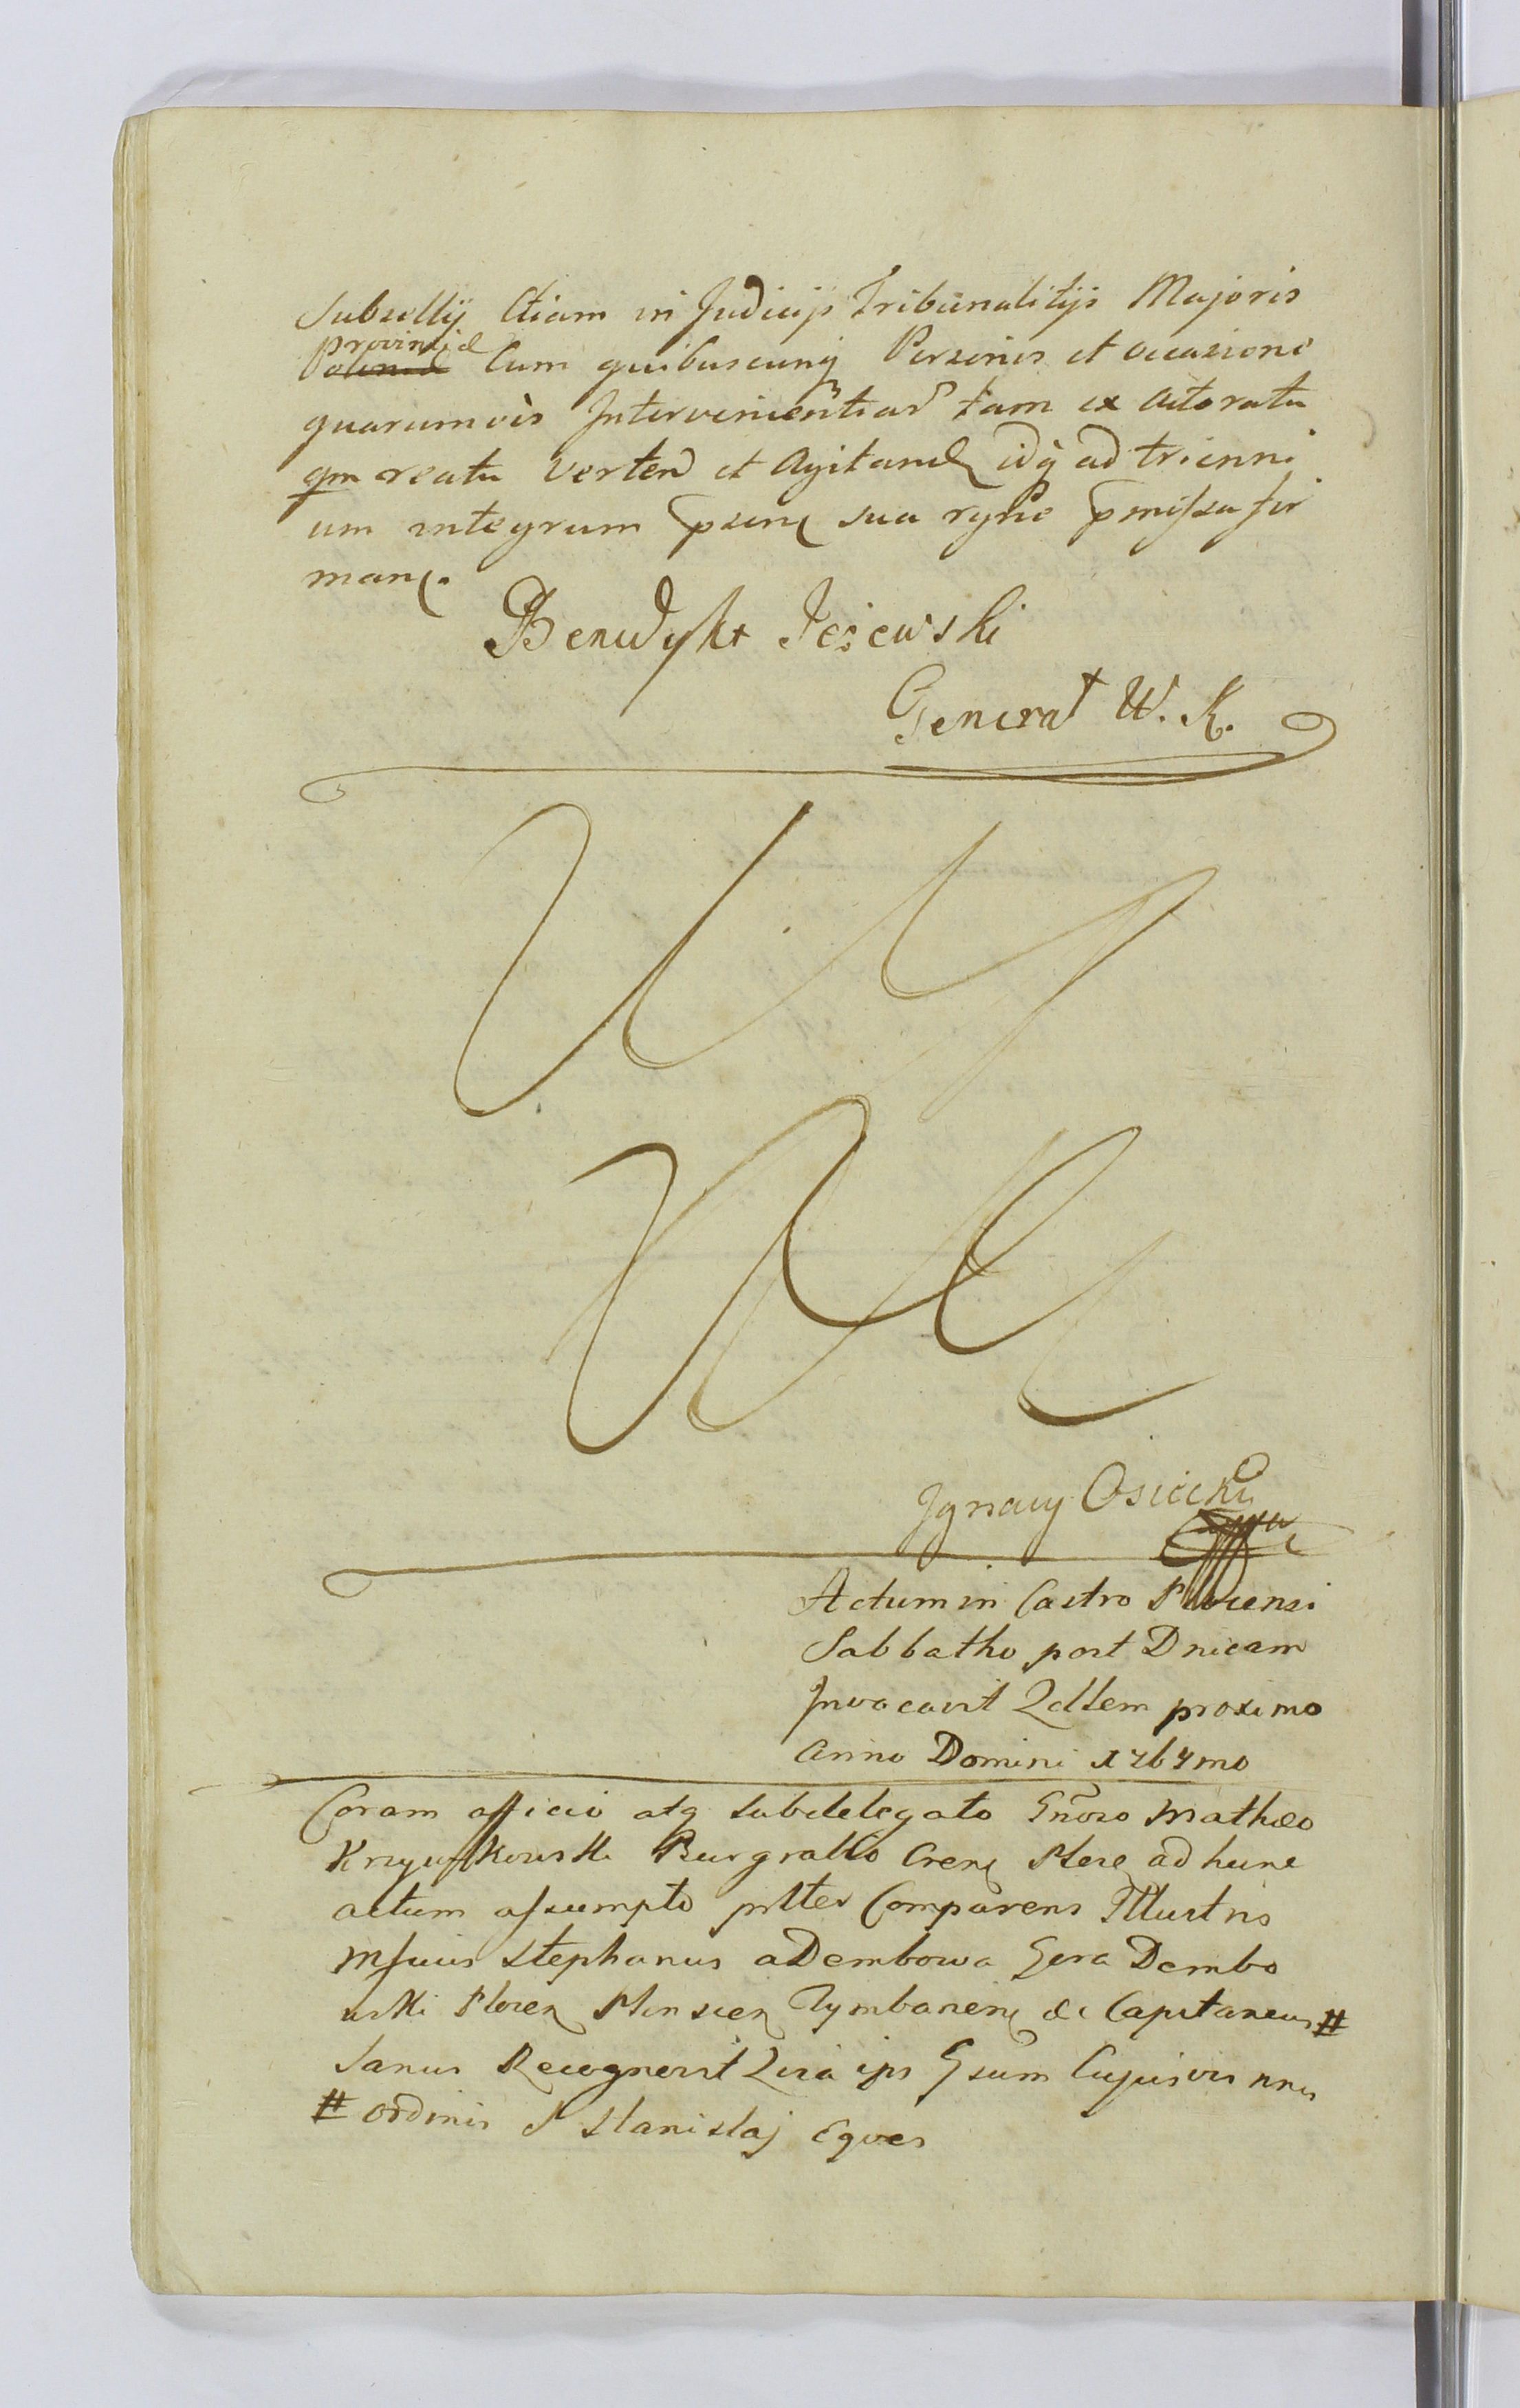 Subsellij Etiam in Judicijs Tribunalitijs Majoris
Provinciæ
Cum quibuscunq Personis et occasione
quarumvis Intervenientiar tam ex Actoratu
qm reatu verten et Agitand idq ad trienni
um integrum psens sua rgne pmissa fir
mans.
Benedykt Jeżewski
Generał W. K.
Ignacy Osiecki
Actum in Castro Plocensi
Sabbatho post Dnicam
Invocavit Qdllem proximo
Anno Domini 1767mo
Coram officio atq Subdelegato Gnoso Mathæo
Burgrabio Cren Plocen ad hunc
actum assumpto pntter Comparens Illustris
Mficus Stephanus a Dembowa Gora Dembo
wski Plocen Plonscen Tymbarcen &c Capitaneus #
Sanus Recognovit Quia ips Gsum Cujusvis nris
# ordinis S Stanislaj Eques